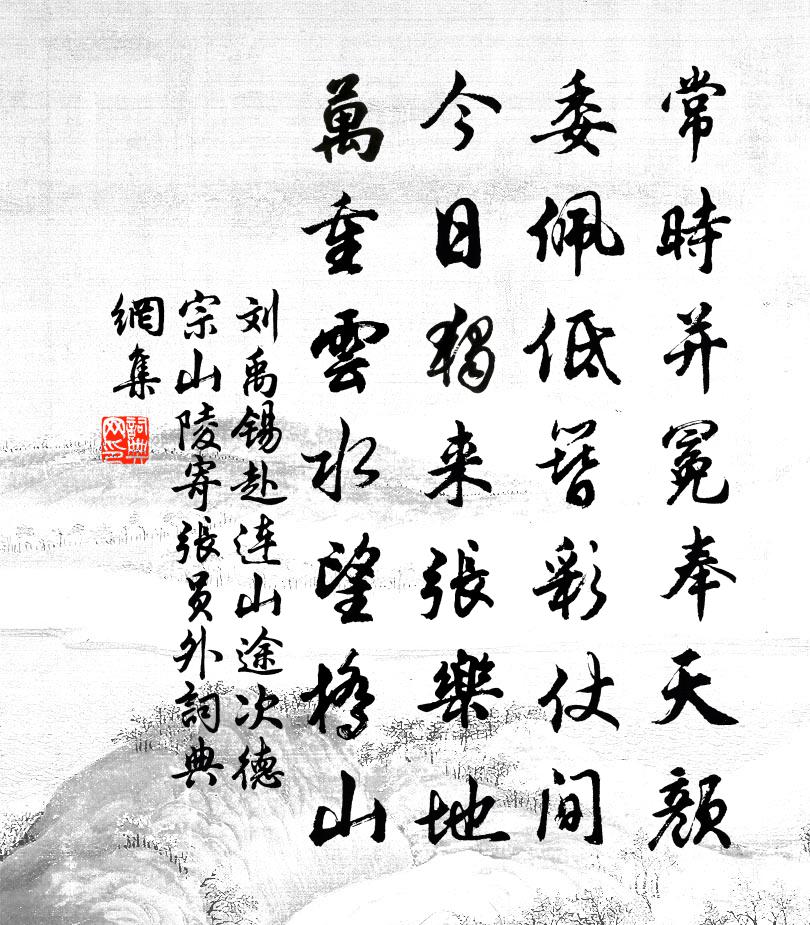 常時并冕奉天顔
委佩低簪彩仗间
今日獨来張樂地
萬重雲水望橋山
刘禹錫赴連山途次德
宗山陵寄張員外詞典
網集
詞典网印